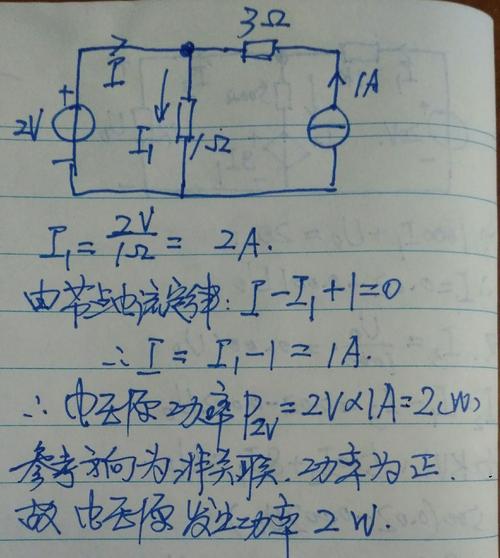 3Ω
I
1A
2V
+
-
I₁
1Ω
I₁ = 2V/1Ω = 2A.
由节点电流定律: I-I₁+1=0
∴ I = I₁-1 = 1A.
∴ 电压源功率 P₂ᵥ = 2V×1A = 2(W)
参考方向为非关联, 功率为正.
故 电压源发生功率 2W.